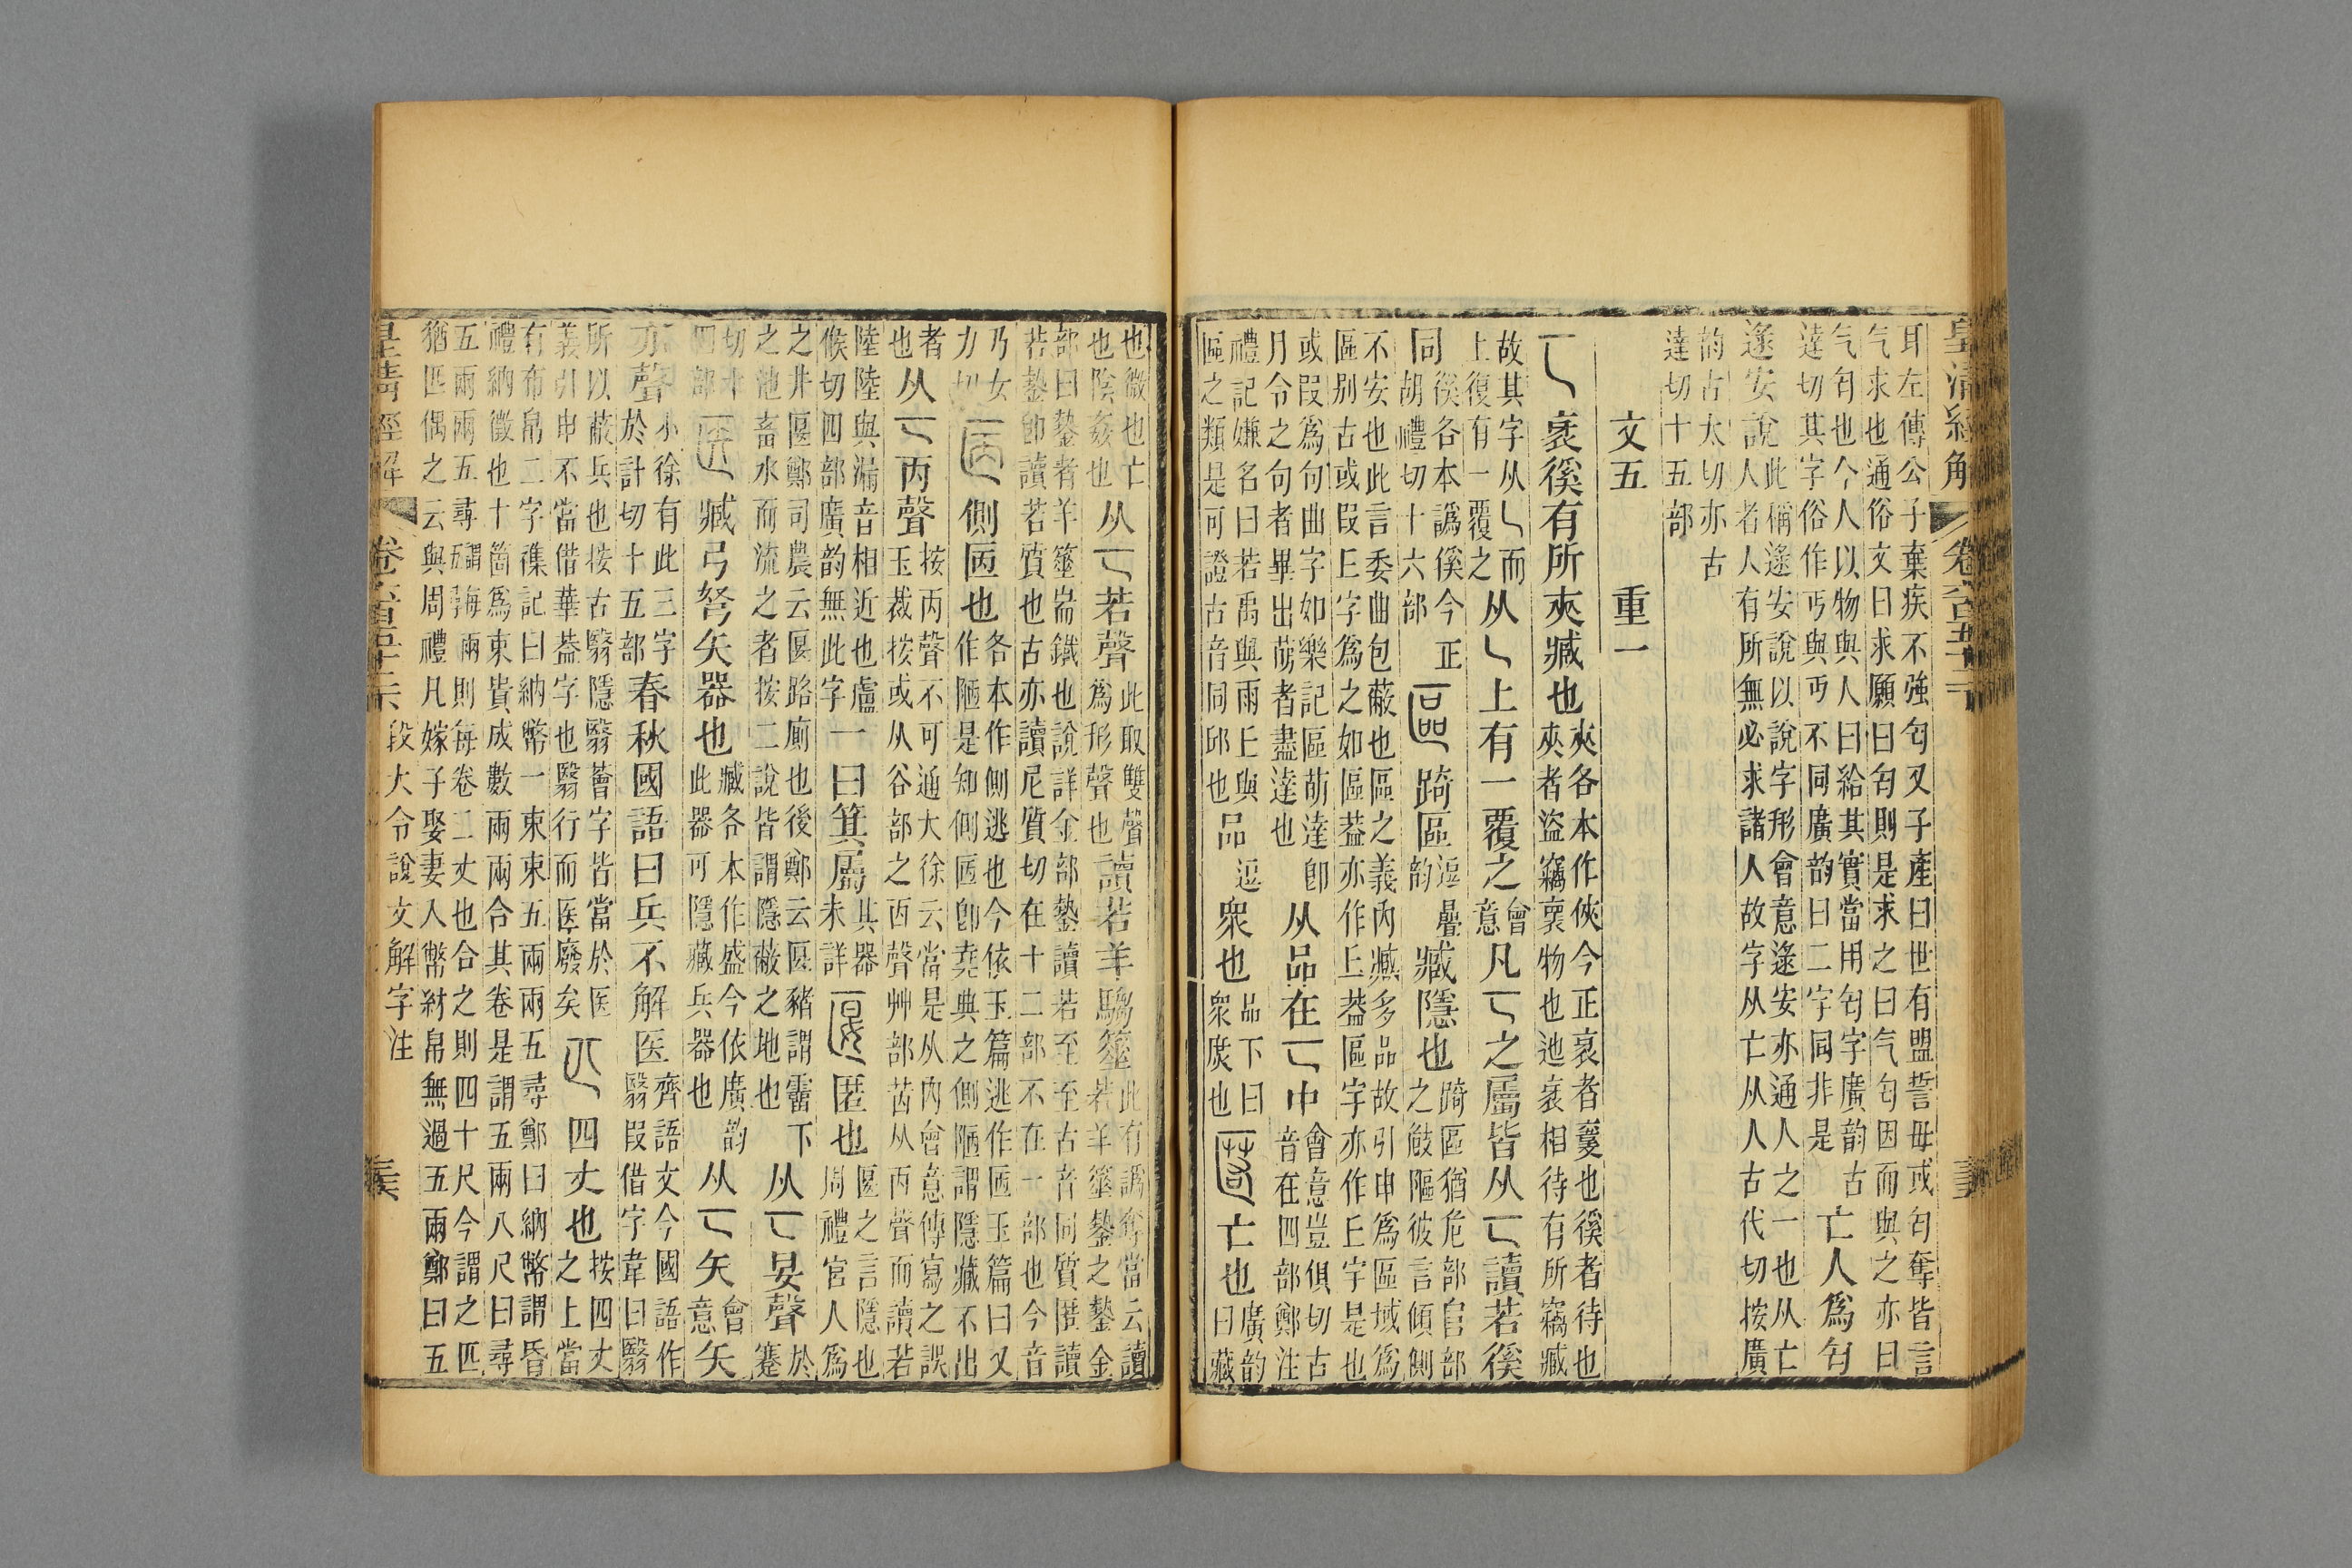 皇清經解 卷六百五十二
耳左傳公子棄疾不強匄又子產曰世有盟誓毋或匄奪皆言
气求也通俗文曰求願曰匄則是求之曰气匄因而與之亦曰
气匄也今人以物與人曰給其實當用匄字廣韵古
達切其字俗作丐與丏不同廣韵曰二字同非是 亡人爲匄
逯安說 此稱逯安說以說字形會意逯安亦通人之一也从亡
人者人有所無必求諸人故字从亡从人古代切按廣
韵古太切亦古
達切十五部
文五 重一
匸 衺徯有所夾臧也 夾各本作俠今正衺者䙝也徯者待也
夾者盜竊褱物也迆衺相待有所竊臧
故其字从乚而
上復有一覆之 从乚上有一覆之 會意 凡匸之屬皆从匸讀若徯
同 徯各本譌傒今正
胡禮切十六部 區 踦區 逗曡韵 臧隱也 踦區猶危部𨸏部
之攱䧢彼言傾側
不安也此言委曲包蔽也區之義內臧多品故引申爲區域爲
區别古或叚丘字爲之如區蓋亦作丘蓋區字亦作丘字是也
或叚爲句曲字如樂記區萌達卽
月令之句者畢出萌者盡達也 从品在匸中 會意豈俱切古
音在四部鄭注
禮記嫌名曰若禹與雨丘與
區之類是可證古音同邱也 品 逗 衆也 品下曰
衆庶也 匿 亡也 廣韵
曰藏
也微也亡
也陰姦也 从匸若聲 此取雙聲
爲形聲也 讀若羊騶箠 此有譌奪當云讀
若羊箠鏊之鏊金
部曰鏊者羊箠耑鐵也說詳金部鏊讀若至至古音同質匿讀
若鏊卽讀若質也古亦讀尼質切在十二部不在一部也今音
乃女
力切 㔷 側㔷也 各本作側逃也今依玉篇逃作㔷玉篇曰又
作陋是知側㔷卽堯典之側陋謂隱藏不出
者
也 从匸丙聲 按丙聲不可通大徐云當是从內會意傳寫之誤
玉裁按或从谷部之㐁聲艸部茵从丙聲而讀若
陸陸與漏音相近也盧
候切四部廣韵無此字 一曰箕屬 其器
未詳 匽 匿也 匽之言隱也
周禮宮人爲
之井匽鄭司農云匽路廁也後鄭云匽豬謂霤下
之池畜水而流之者按二說皆謂隱蔽之地也 从匸妟聲 於
蹇
切十
四部 医 臧弓弩矢器也 臧各本作盛今依廣韵
此器可隱藏兵器也 从匸矢 會
意 矢
亦聲 小徐有此三字
於計切十五部 春秋國語曰兵不解医 齊語文今國語作
翳叚借字韋曰翳
所以蔽兵也按古翳隱翳薈字皆當於医
義引申不當借華蓋字也翳行而医廢矣 匹 四丈也 按四丈
之上當
有布帛二字襍記曰納幣一束束五兩兩五尋鄭曰納幣謂昏
禮納徵也十箇爲束貴成數兩兩合其卷是謂五兩八尺曰尋
五兩兩五尋則每卷二丈也合之則四十尺今謂之匹
猶匹偶之云與周禮凡嫁子娶妻入幣純帛無過五兩鄭曰五
皇清經解 卷六百五十二 段大令說文解字注